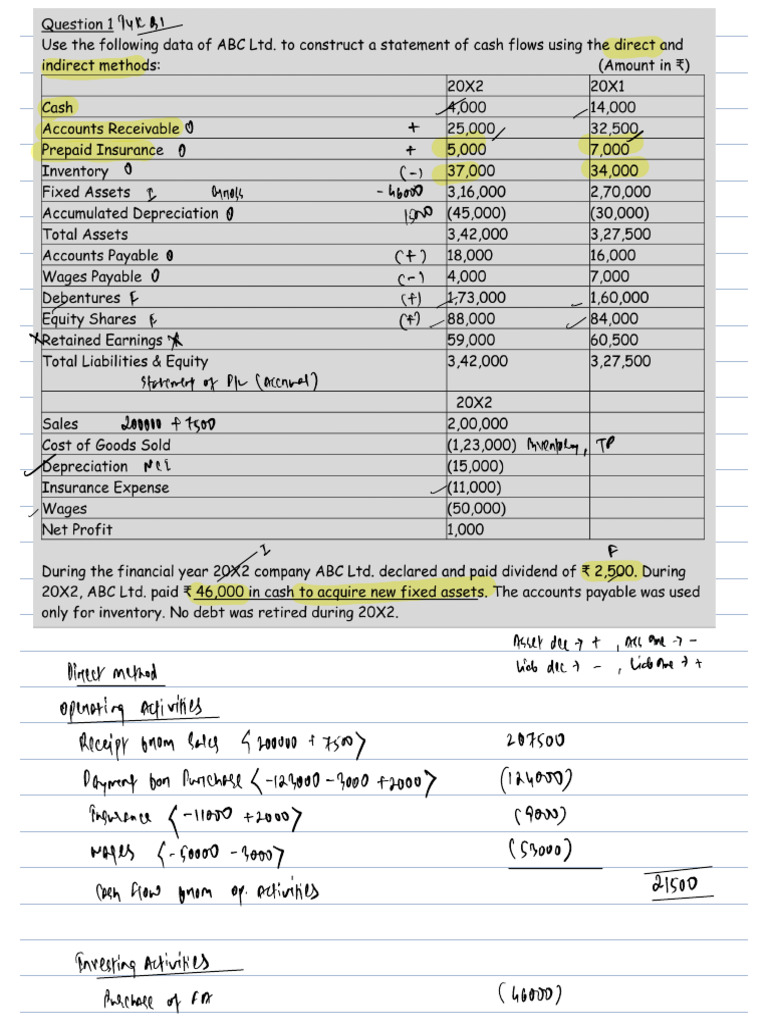 Question 1
Use the following data of ABC Ltd. to construct a statement of cash flows using the direct and
indirect methods: (Amount in ₹)
20X2 20X1
Cash 4,000 14,000
Accounts Receivable O + 25,000 32,500
Prepaid Insurance O + 5,000 7,000
Inventory O (-) 37,000 34,000
Fixed Assets I Gross - 46000 3,16,000 2,70,000
Accumulated Depreciation O (45,000) (30,000)
Total Assets 3,42,000 3,27,500
Accounts Payable O (+) 18,000 16,000
Wages Payable O (-) 4,000 7,000
Debentures F (+) 1,73,000 1,60,000
Equity Shares F (+) 88,000 84,000
Retained Earnings 59,000 60,500
Total Liabilities & Equity 3,42,000 3,27,500
Statement of P/L (Accrual)
20X2
Sales 200000 + 7500 2,00,000
Cost of Goods Sold (1,23,000) Inventory, TP
Depreciation NCI (15,000)
Insurance Expense (11,000)
Wages (50,000)
Net Profit 1,000
I F
During the financial year 20X2 company ABC Ltd. declared and paid dividend of ₹ 2,500. During
20X2, ABC Ltd. paid ₹ 46,000 in cash to acquire new fixed assets. The accounts payable was used
only for inventory. No debt was retired during 20X2.
Asset dec → +, Ass inc → -
Liab dec → -, Liab inc → +
Direct method
Operating Activities
Receipt from Sales <200000 + 7500> 207500
Payment for Purchase <-123000 - 3000 + 2000> (124000)
Insurance <-11000 + 2000> (9000)
Wages <-50000 - 3000> (53000)
Cash flow from op. Activities 21500
Investing Activities
Purchase of FA (46000)